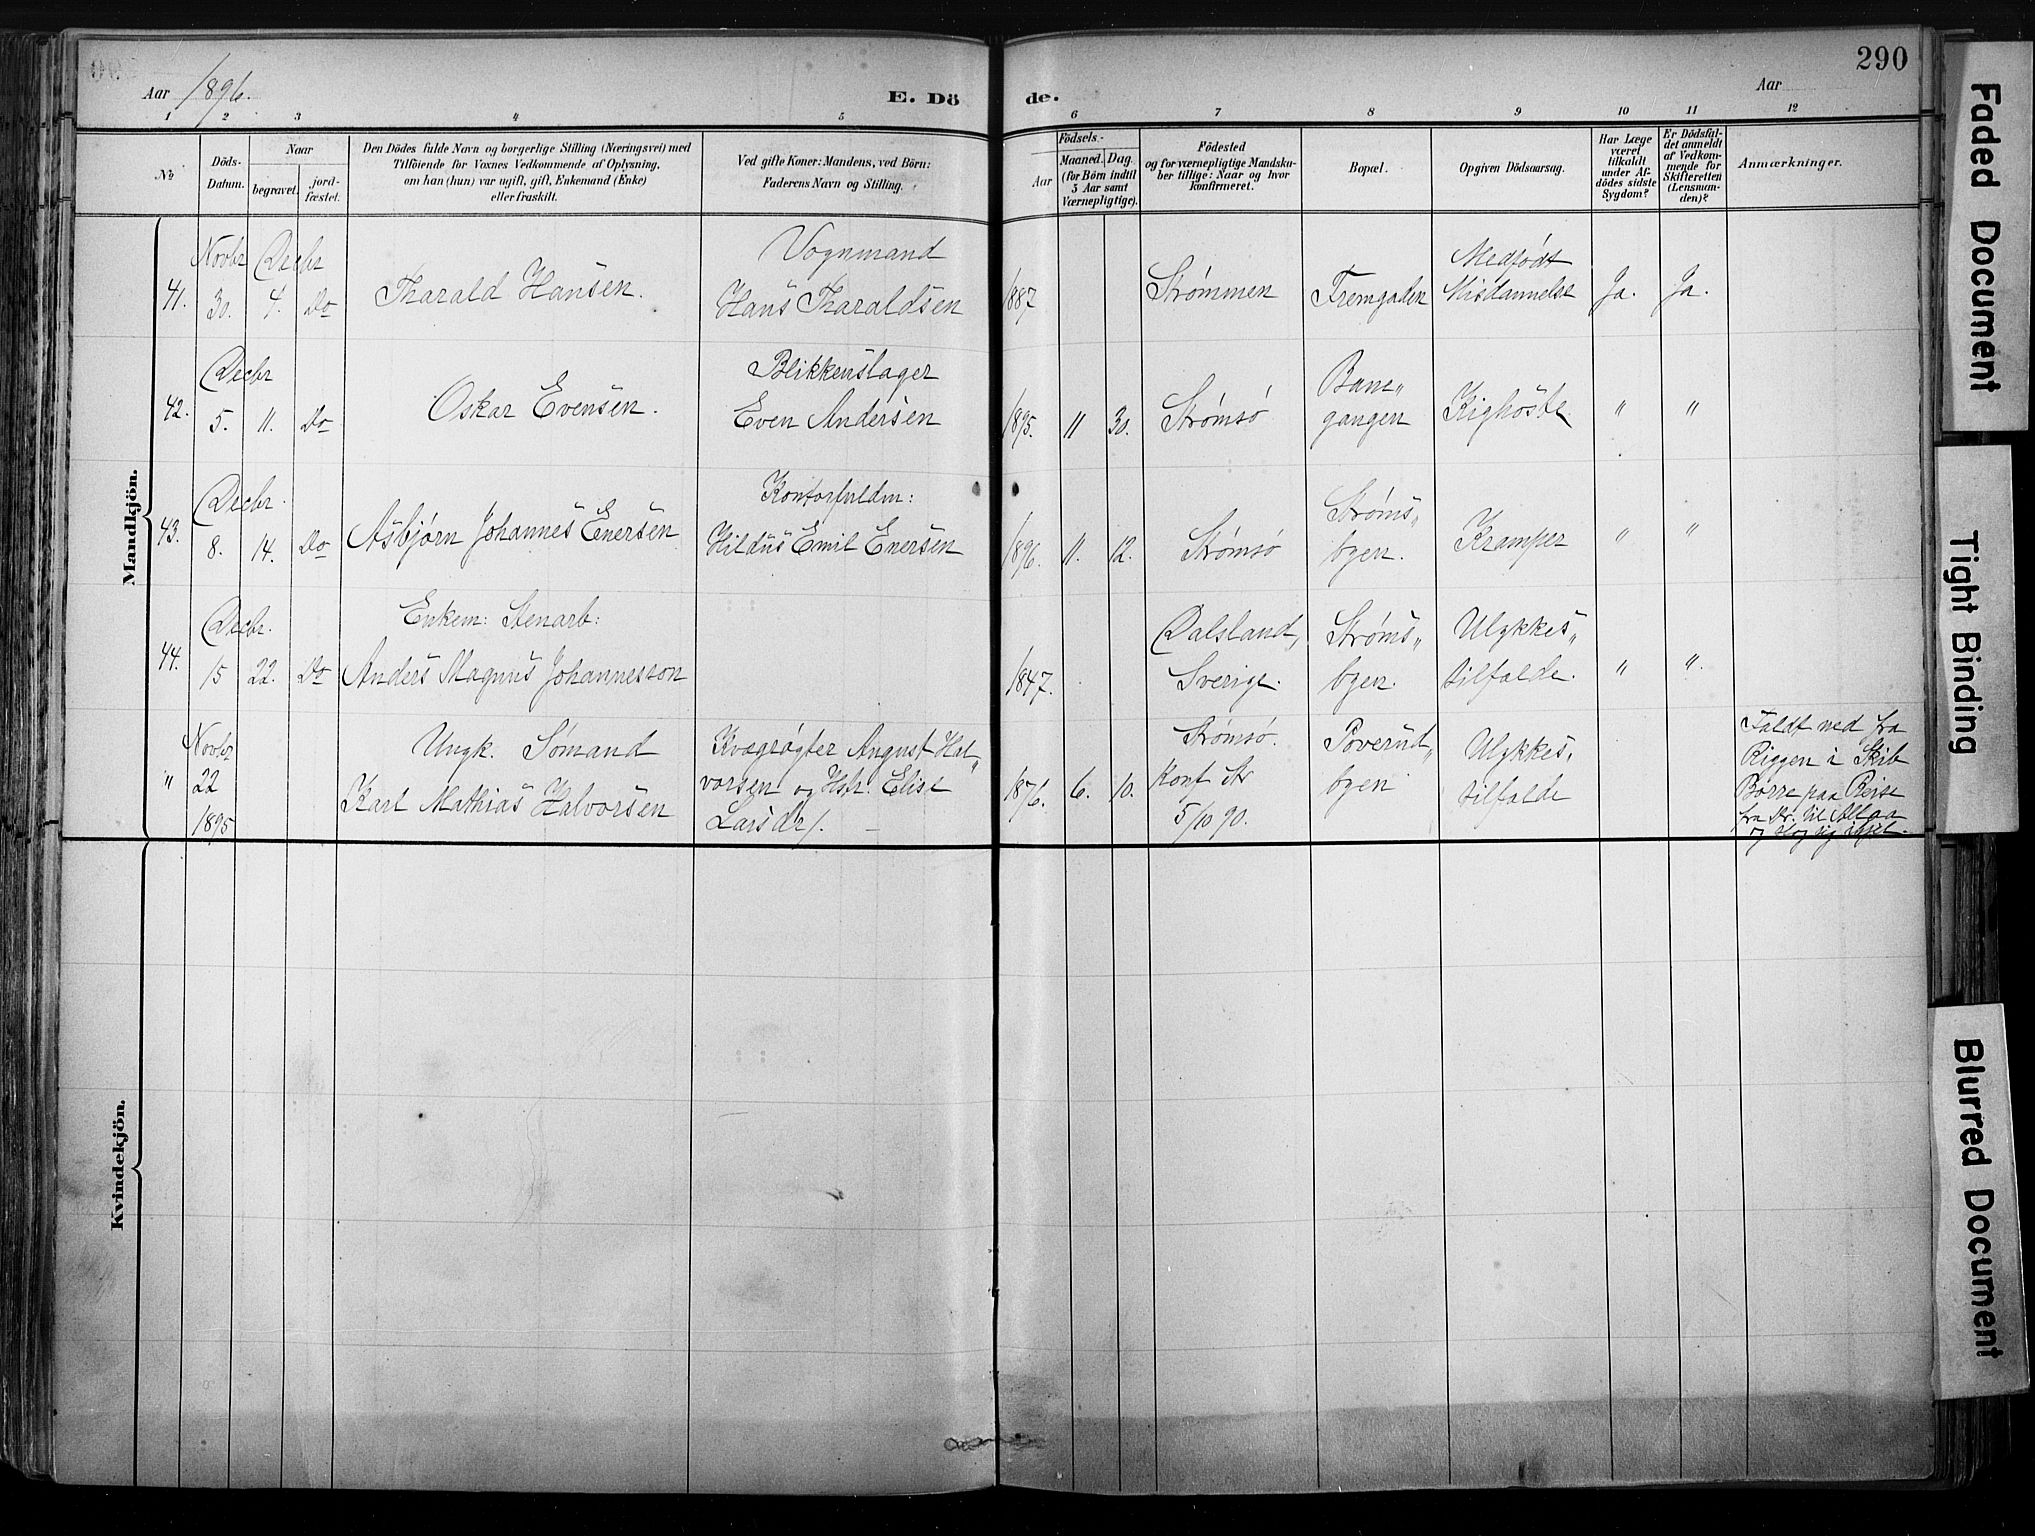 290
Aar 1896.
E. Döde.
Aar
1 2 3 4 5 6 7 8 9 10 11 12
No
Döds-Datum.
Naar
begravet.
jord-fæstet.
Den Dödes fulde Navn og borgerlige Stilling (Næringsvei) med
Tilföiende for Voxnes Vedkommende af Oplysning,
om han (hun) var ugift, gift, Enkemand (Enke)
eller fraskilt.
Ved gifte Koner: Mandens, ved Börn:
Faderens Navn og Stilling.
Födsels-
Aar
Maaned. Dag.
(for Börn indtil
5 Aar samt
Værnepligtige).
Födested
og for værnepligtige Mandsku-
ber tillige: Naar og hvor
konfirmeret.
Bopæl.
Opgiven Dödsaarsag.
Har Læge
været
tilkaldt
under Af-
dödes sidste
Sygdom?
Er Dödsfal-
det anmeldt
af Vedkom-
mende for
Skifteretten
(Lensman-
den)?
Anmærkninger.
Mandkjön.
41. Novbr 30. Decbr 4. Do Tharald Hansen. Vognmand
Hans Tharaldsen 1887 Strømmen Fremgaden Medfødt
Misdannelse Ja. Ja.
42. Decbr 5. 11. Do Oskar Evensen. Blikkenslager
Even Andersen 1895. 11 30. Strømsø Bane"
gangen Kighoste " "
43. Decbr. 8. 14. Do Asbjørn Johannes Enersen Kontorfuldm:
Hildus Emil Enersen 1896. 11. 12. Strømsø Strøms"
byen. Kramper " "
44. Decbr. 15 22. Do Enkem: Stenarb:
Anders Magnus Johannesson 1847. Dalsland,
Sverige. Strøms"
byen. Ulykkes"
tilfælde. " "
" Novbr 22 1895 Ungk. Sømand
Karl Mathias Halvorsen Kvægrøgter August Hal"
vorsen og Hstr. Elise
Larsdr/. 1876. 6. 10. Strømsø.
Konf. Str
5/10 90. Poverud"
byen Ulykkes"
tilfælde Faldt ned fra
Riggen i Skib
Borre paa Reise
fra Dr. til
og slog sig ihjel.
Kvindekjön.
Faded Document
Tight Binding
Blurred Document